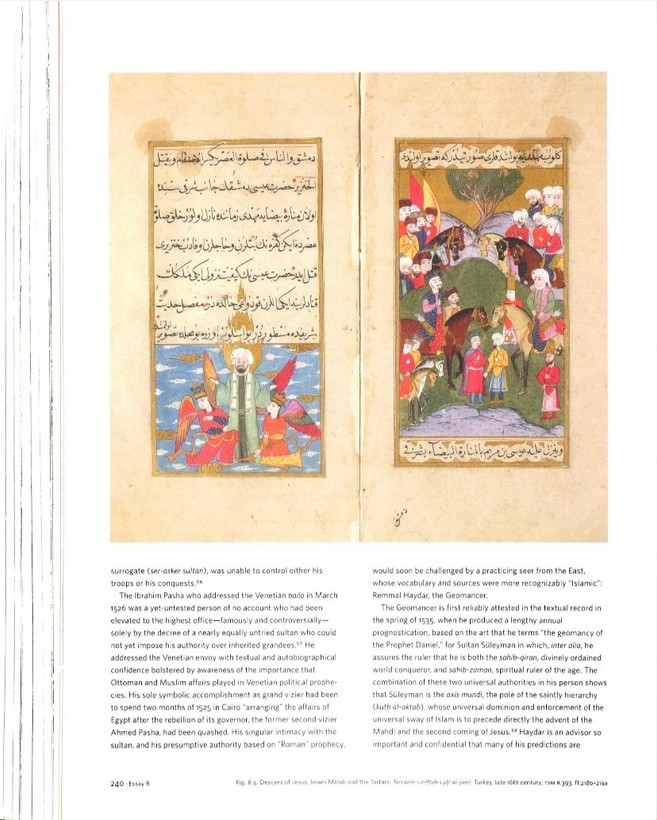 دمشق والناس فى صلوة العصر ويقتل
الخنزير حضرت عيسى دمشقك جانب شرقى سنده
اولان منارهٔ بيضايه مهدى زماننده نازل اولور خلق صلوة
عصرده ايكن
قتل ايده حضرت عيسى نك كيفيت نزولى ايكى ملكك
مفصل حديث
شريفده مسطوردر
وينزل عليه عيسى بن مريم بالمنارة البيضاء بشرقى
دمشق
surrogate (ser-asker sultan), was unable to control either his
troops or his conquests.⁵⁶
The Ibrahim Pasha who addressed the Venetian bailo in March
1526 was a yet-untested person of no account who had been
elevated to the highest office—famously and controversially—
solely by the decree of a nearly equally untried sultan who could
not yet impose his authority over inherited grandees.⁵⁷ He
addressed the Venetian envoy with textual and autobiographical
confidence bolstered by awareness of the importance that
Ottoman and Muslim affairs played in Venetian political prophe-
cies. His sole symbolic accomplishment as grand vizier had been
to spend two months of 1525 in Cairo "arranging" the affairs of
Egypt after the rebellion of its governor, the former second vizier
Ahmed Pasha, had been quashed. His singular intimacy with the
sultan, and his presumptive authority based on "Roman" prophecy,
would soon be challenged by a practicing seer from the East,
whose vocabulary and sources were more recognizably "Islamic":
Remmal Haydar, the Geomancer.
The Geomancer is first reliably attested in the textual record in
the spring of 1535, when he produced a lengthy annual
prognostication, based on the art that he terms "the geomancy of
the Prophet Daniel," for Sultan Süleyman in which, inter alia, he
assures the ruler that he is both the sahib-qiran, divinely ordained
world conqueror, and sahib-zaman, spiritual ruler of the age. The
combination of these two universal authorities in his person shows
that Süleyman is the axis mundi, the pole of the saintly hierarchy
(kutb al-aktab), whose universal dominion and enforcement of the
universal sway of Islam is to precede directly the advent of the
Mahdi and the second coming of Jesus.⁵⁸ Haydar is an advisor so
important and confident that many of his predictions are
240 · Essay 8
Fig. 8.9. Descent of Jesus, Imam Mahdi and the Tartars, Tercüme-i miftah-i jifr al-jami, Turkey, late 16th century, TSM B.393, ff.218b–219a